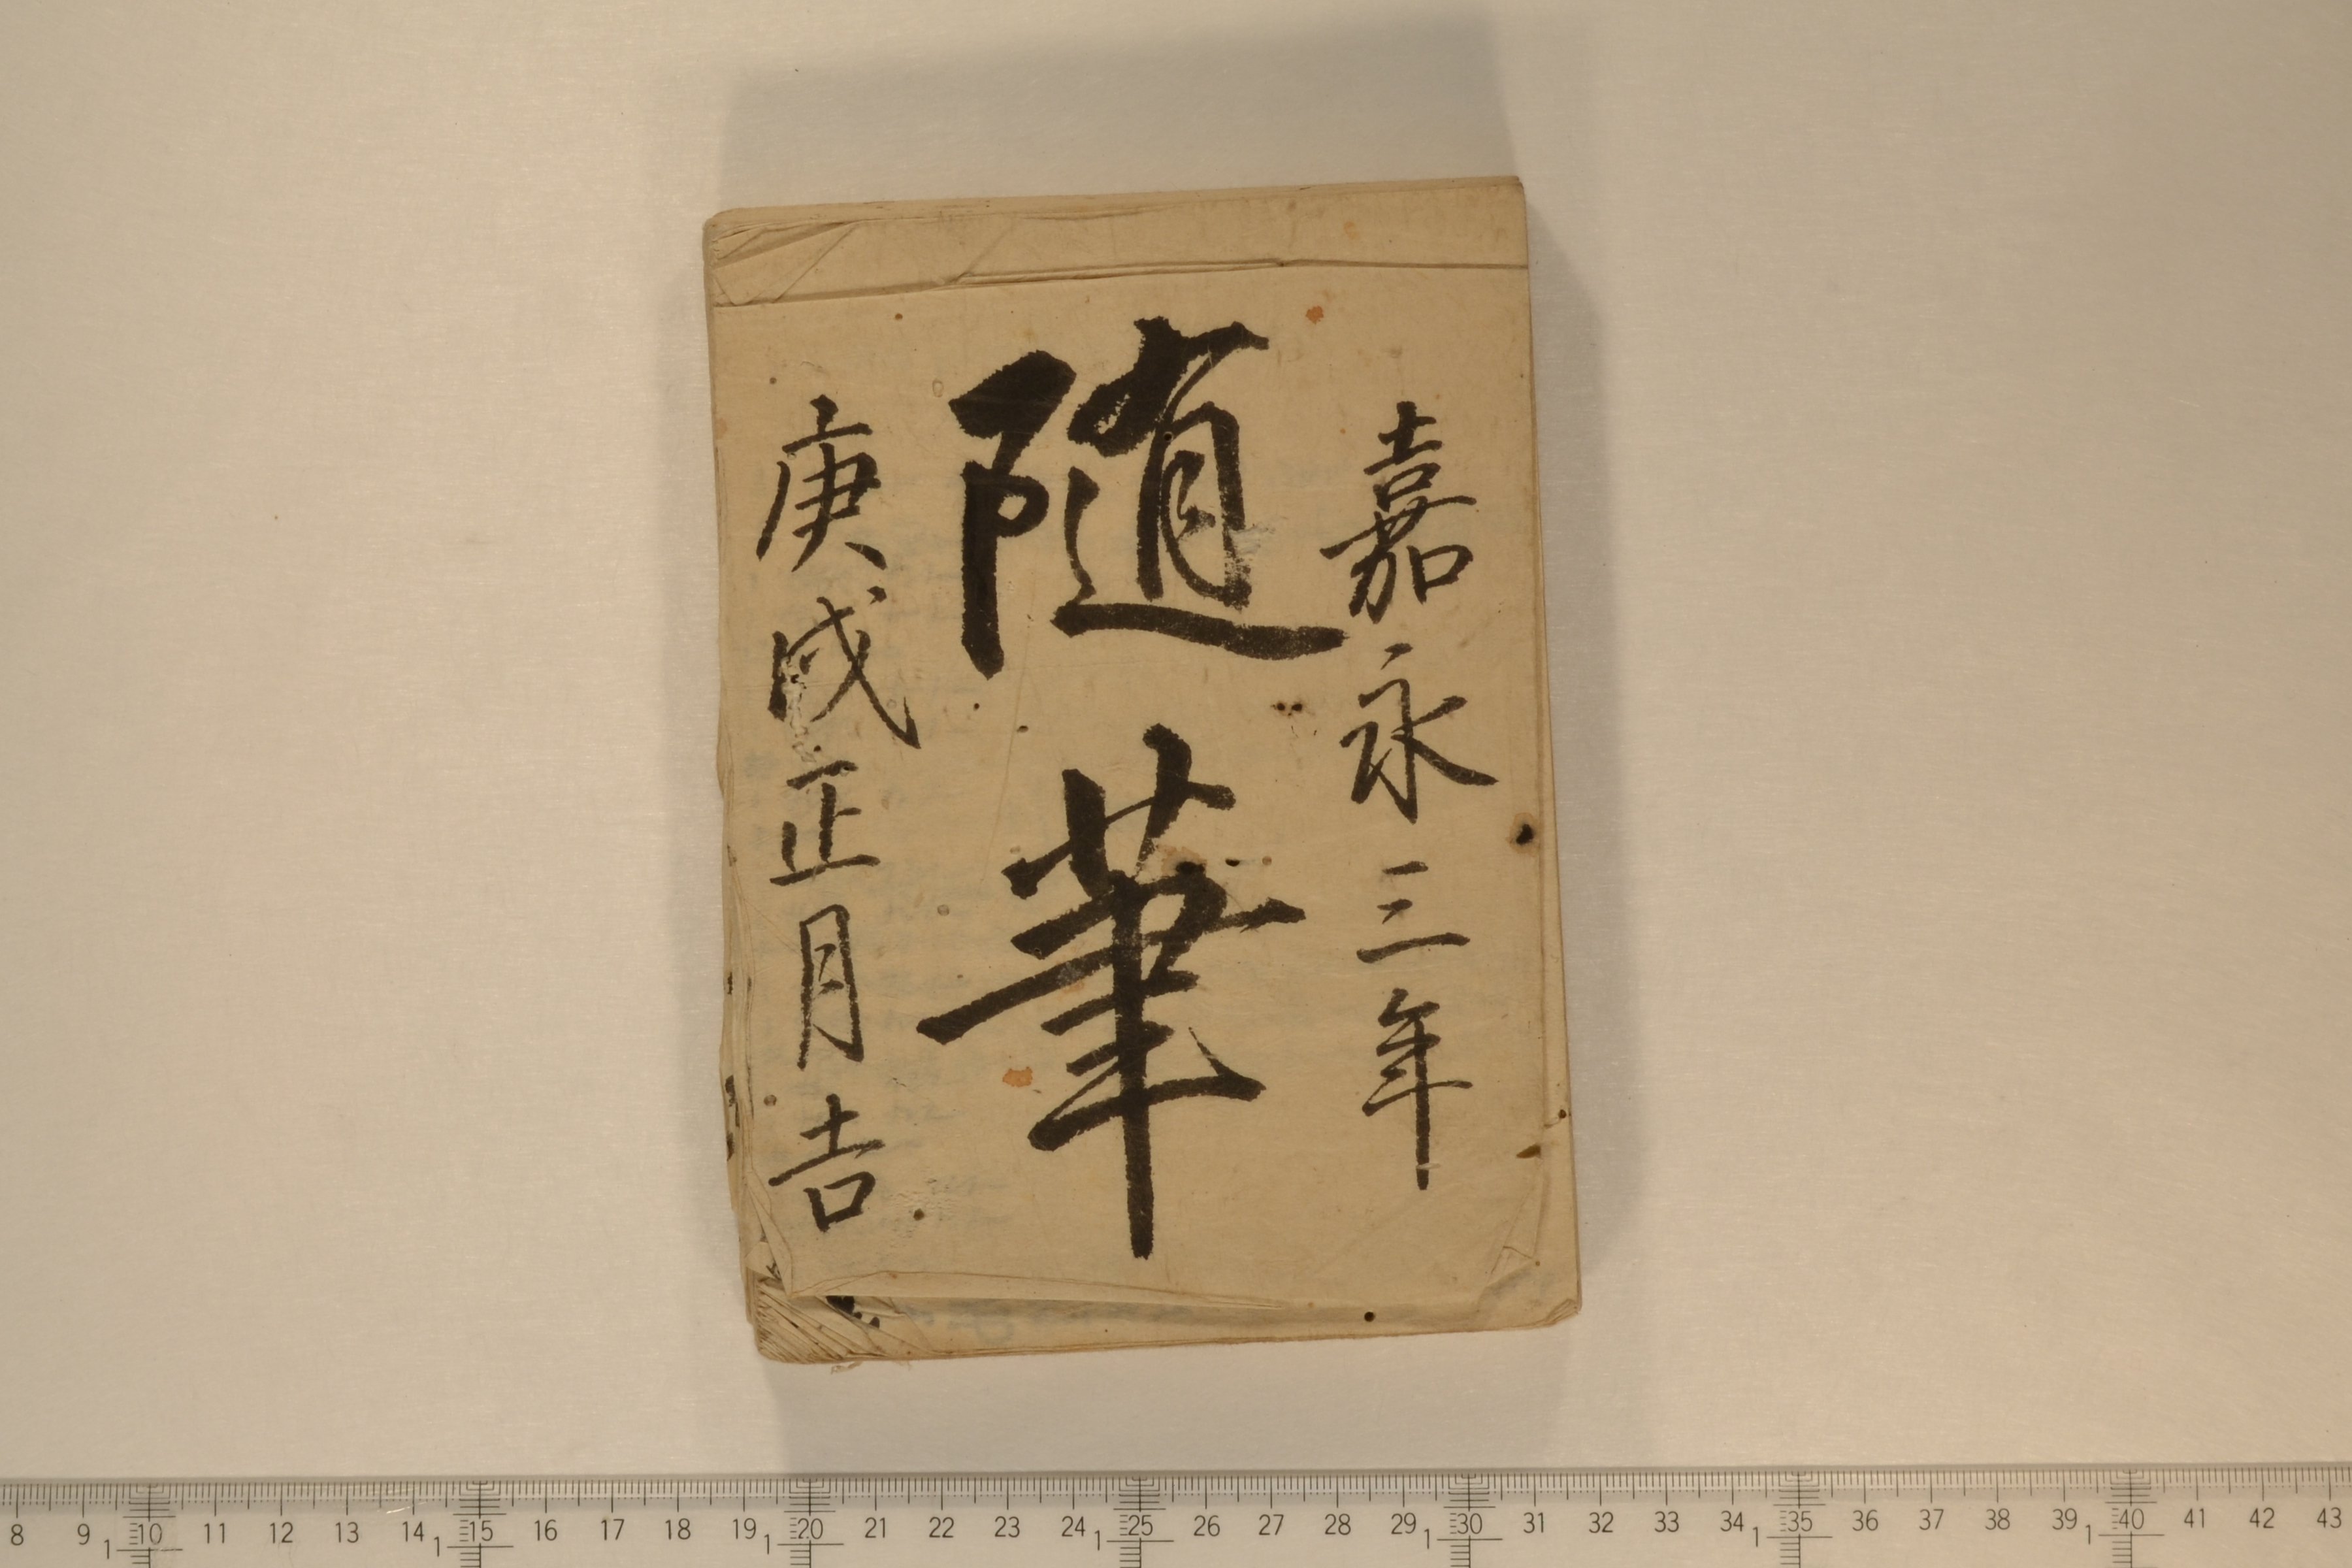 嘉永三年
随筆
庚戌正月吉
8 9 10 11 12 13 14 15 16 17 18 19 20 21 22 23 24 25 26 27 28 29 30 31 32 33 34 35 36 37 38 39 40 41 42 43
1 1 1 1 1 1 1